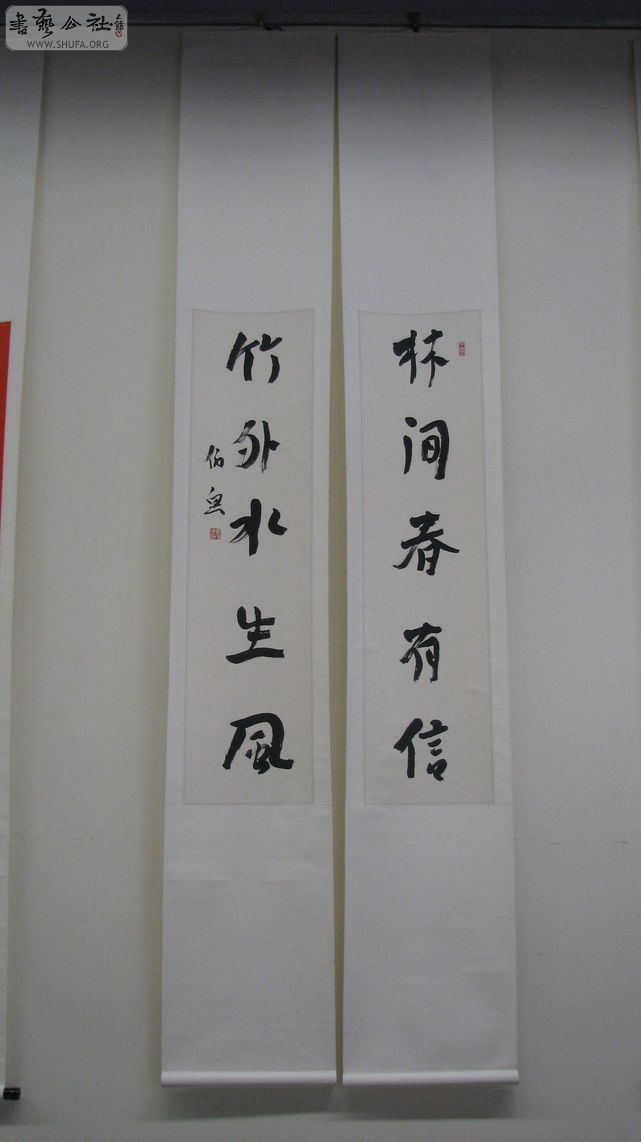 書藝公社
WWW.SHUFA.ORG
林间春有信
竹外水生风